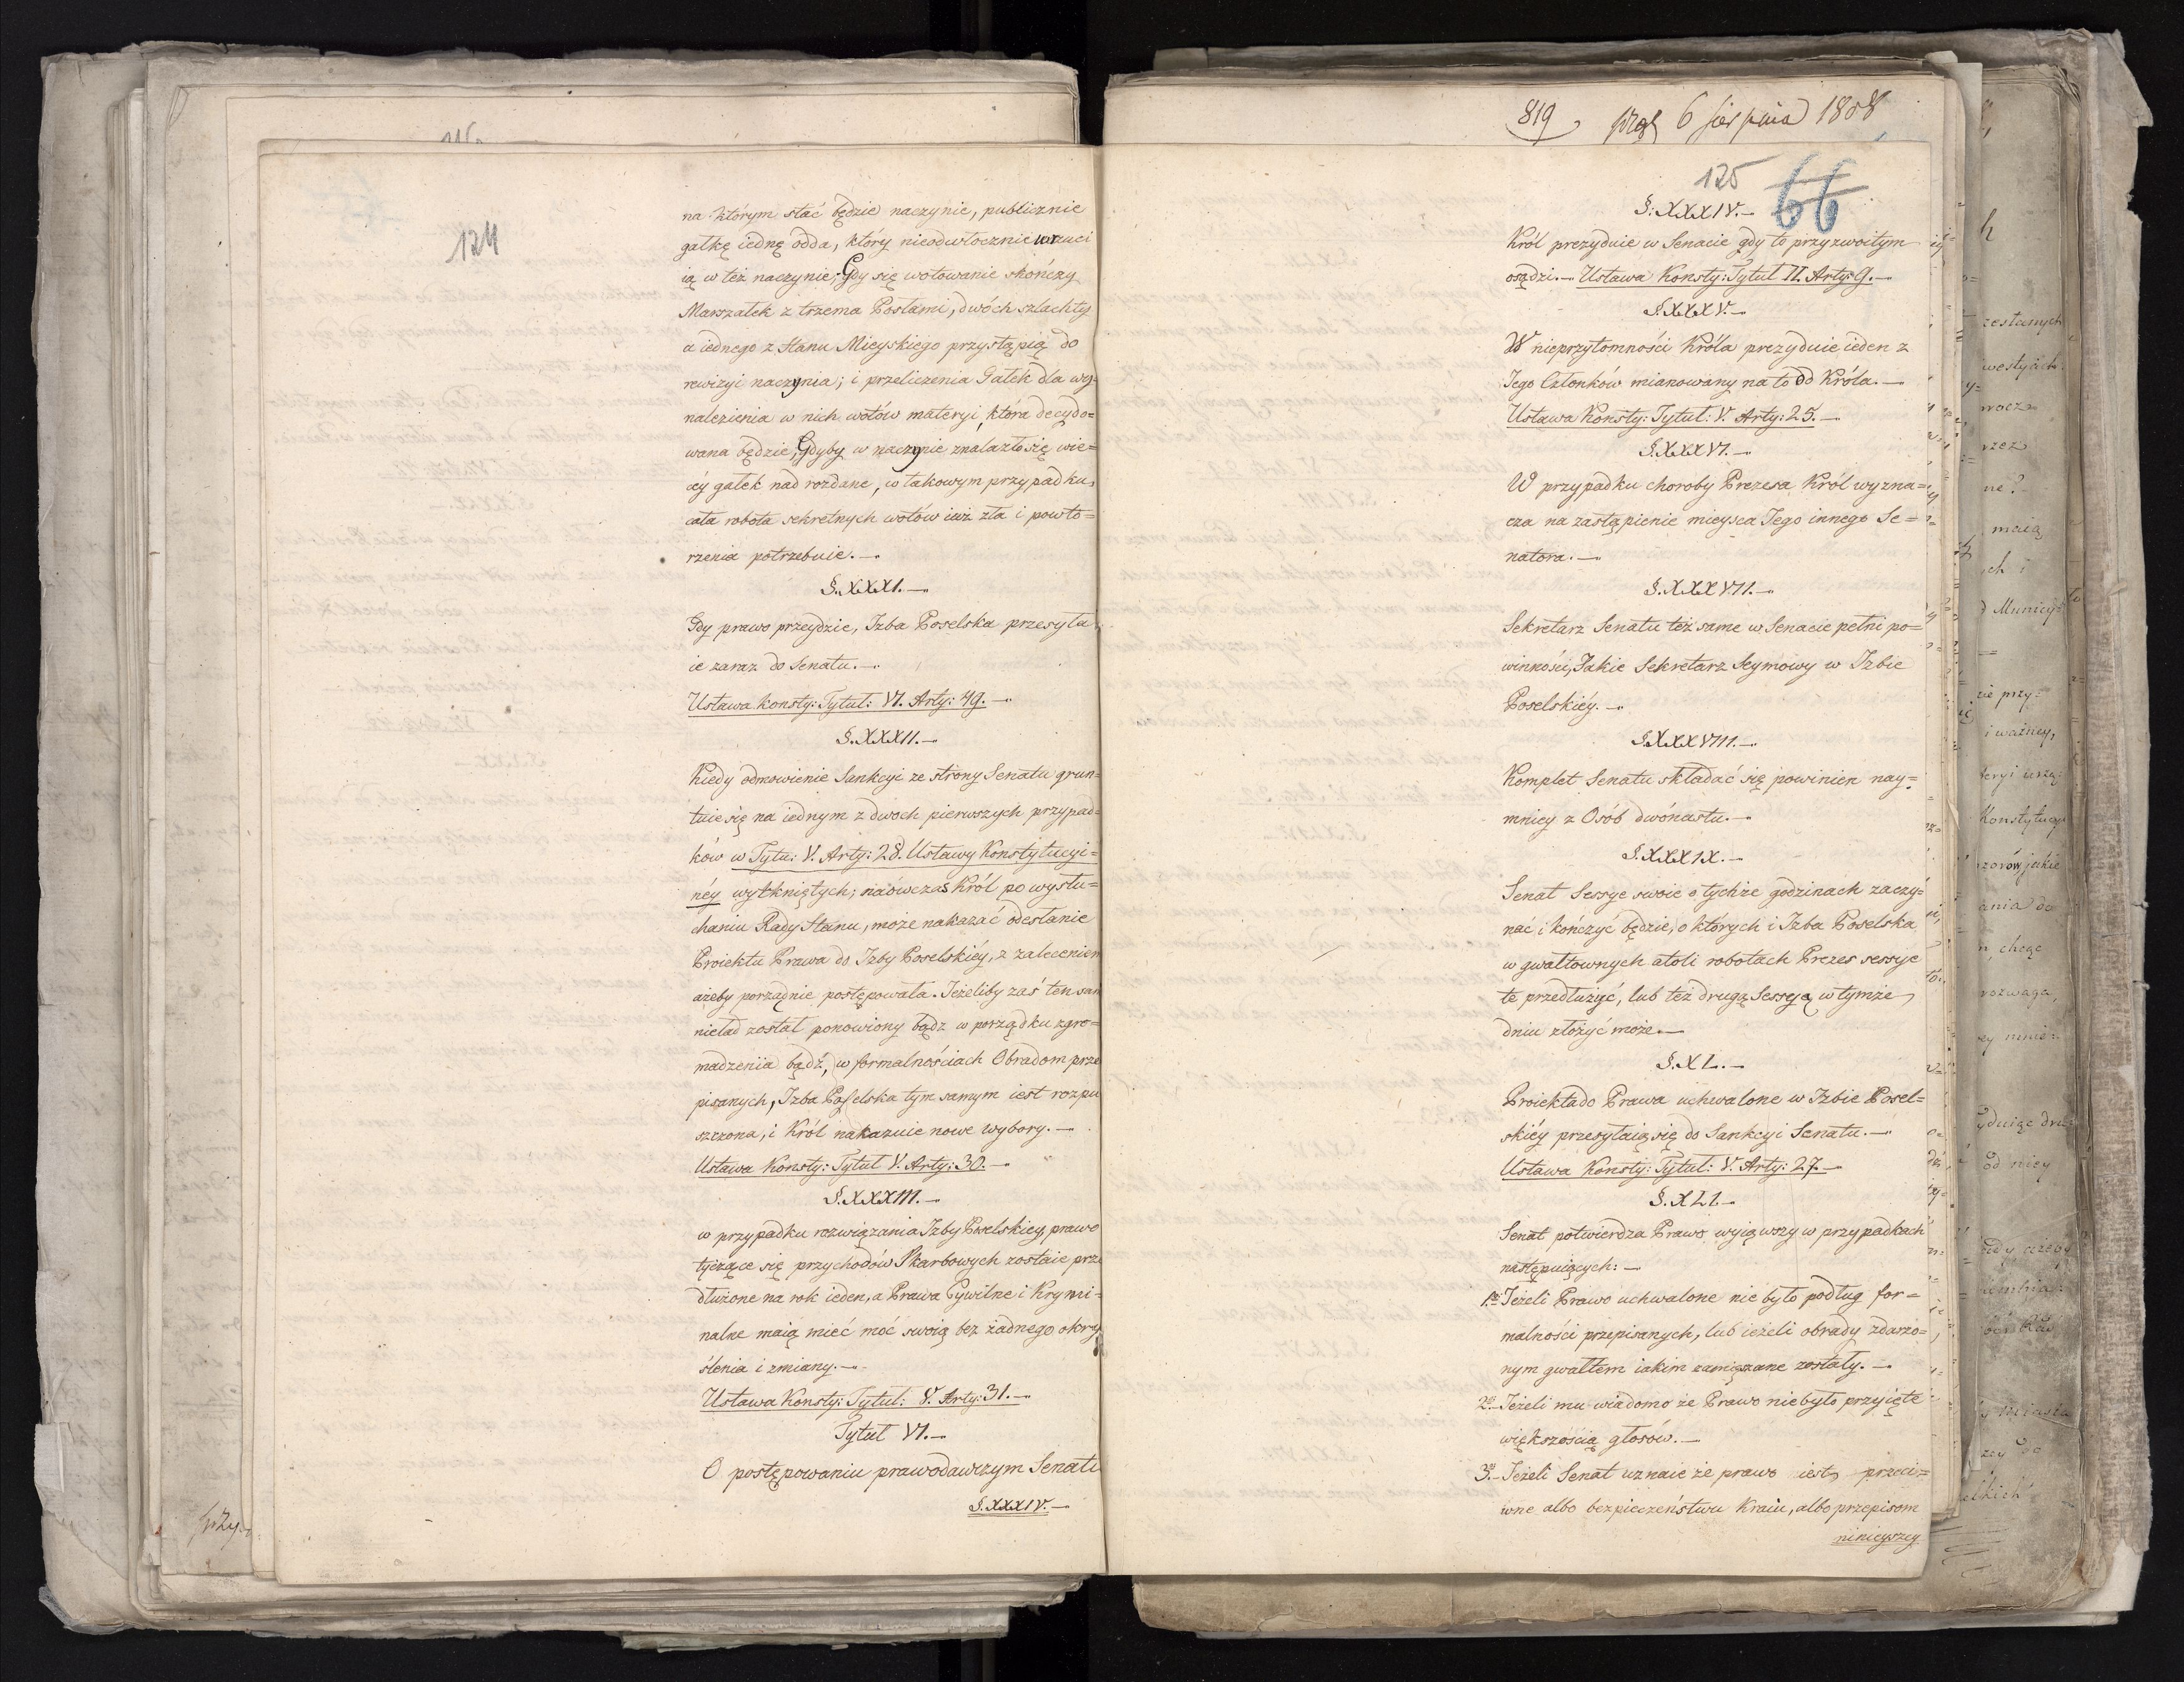 124
na którym stać będzie naczynie, publicznie
gałkę iednę odda, który nieodwłocznie wrzuci
ią w też naczynie; Gdy się wotowanie skończy
Marszałek z trzema Posłami, dwóch szlachty
a iednego z stanu Mieyskiego przystąpią do
rewizyi naczynia; i przeliczenia Gałek dla wy-
nalezienia w nich wotów materyi, która decydo=
wana będzie, Gdyby w naczynie znalazło się wie=
céy gałek nad rozdane, w takowym przypadku,
cała robota sekretnych wotów iuż zła i powto=
rzenia potrzebuie.—
§. XXXI.—
Gdy prawo przeydzie, Izba Poselska przesyła
ie zaraz do Senatu.—
Ustawa konsty: Tytuł: VI. Arty: 49.—
§. XXXII.—
Kiedy odmowienie Sankcyi ze strony Senatu grun=
tuie się na iednym z dwoch pierwszych przypad=
ków w Tytu: V. Arty: 28. Ustawy Konstytucyi=
néy wytkniętych; naówczas Król po wysłu=
chaniu Rady Stanu, może nakazać odesłanie
Proiektu Prawa do Izby Poselskiéy, z zaleceniem
ażeby porządnie postępowała. Jeżeliby zaś ten sam
nieład został ponowiony bądz w porządku zgro=
madzeniia bądź, w formalnościach Obradom prze
pisanych, Izba Poselska tym samym iest rozpu
szczona, i Król nakazuie nowe wybory.—
Ustawa Konsty: Tytuł V. Arty: 30.—
§. XXXIII.—
w przypadku rozwiązania Izby Poselskiey, prawo
tyczące się przychodów Skarbowych zostaie prze
dłużone na rok ieden, a Prawa Cywilne i Krymi=
nalne maią mieć moć swoią bez żadnego okry
ślenia i zmiany.—
Ustawa Konsty: Tytuł: V. Arty: 31.—
Tytuł VI.—
O postępowaniu prawodawczym Senatu
§. XXXIV.—
819 6 Sierpnia 1808
125 66
§: XXXIV.—
Król prezyduie w Senacie gdy to przyzwoitym
osądzi.— Ustawa Konsty: Tytuł II. Arty: 9.—
§. XXXV.—
W nieprzytomności Króla prezyduie ieden z
Jego Członków mianowany na to od Króla.—
Ustawa Konsty: Tytuł: V. Arty: 25.—
§. XXXVI.—
W przypadku choroby Prezesa Król wyzna=
cza na zastąpienie mieysca Jego innego Se=
natora.—
§. XXXVII.—
Sekretarz Senatu też same w Senacie pełni po=
winności, Jakie Sekretarz Seymowy w Izbie
Poselskiéy.—
§. XXXVIII.—
Komplet Senatu składać się powinien nay=
mniey z Osób dwónastu.—
§. XXXIX.—
Senat Sessye swoie o tychże godzinach zaczy=
nać i kończyć będzie, o których i Izba Poselska
w gwałtownych atoli robotach Prezes sessye
te przedłużyć, lub też drugą Sessyą w tymże
dniu złożyć może.—
§. XL.—
Proiekta do Prawa uchwalone w Izbie Posel=
skiéy przesyłaią się do Sankcyi Senatu.—
Ustawa Konsty: Tytuł: V. Arty: 27.—
§. XLI.—
Senat potwierdza Prawo wyiąwszy w przypadkach
następuiących:—
1.° Jeżeli Prawo uchwalone nie było podług for=
malności przepisanych, lub ieżeli obrady zdarzo=
nym gwałtem iakim zamięszane zostały.—
2.° Jeżeli mu wiadomo że Prawo nie było przyięte
większością głosów.—
3.° Jeżeli Senat uznaie że prawo iest przeci=
wne albo bezpieczeństwu Kraiu, albo przepisom
ninieyszey